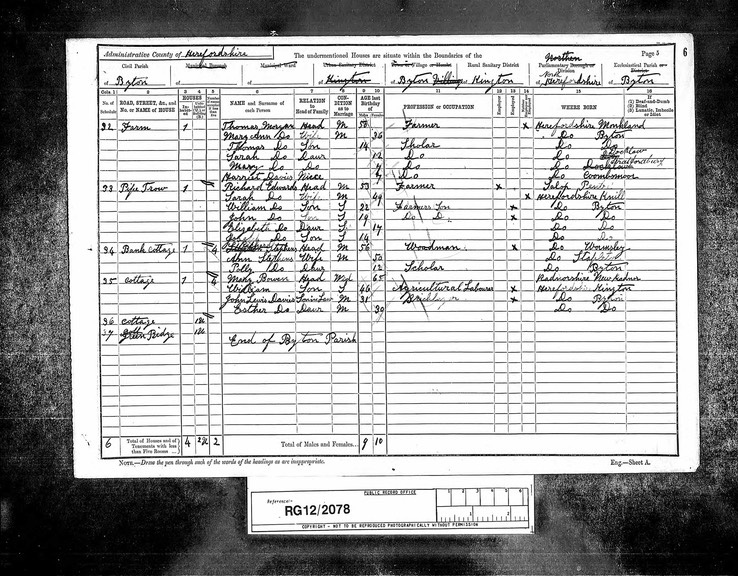 Administrative County of Herefordshire
The undermentioned Houses are situate within the Boundaries of the
Page 5
6
Civil Parish
Municipal Borough
Municipal Ward
Urban Sanitary District
Town or Village or Hamlet
Rural Sanitary District
Northern
Parliamentary Borough or Division
Ecclesiastical Parish or District
of Byton
of Kington
of Byton Village
of Kington
of Herefordshire
of Byton
Cols 1 2 3 4 5 6 7 8 9 10 11 12 13 14 15 16
No. of Schedule
ROAD, STREET, &c., and No. or NAME of HOUSE
HOUSES
NAME and Surname of each Person
RELATION to Head of Family
CONDITION as to Marriage
AGE last Birthday of
PROFESSION or OCCUPATION
Employer
Employed
WHERE BORN
If (1) Deaf-and-Dumb (2) Blind (3) Lunatic, Imbecile or Idiot
32 Farm 1 Thomas Morgan Head M 56 Farmer x Herefordshire Monkland
Mary Ann Do Wife M 36 Do Byton
Thomas Do Son 14 Scholar Do Do
Sarah Do Daur 12 Do Do
Mary Do Do 7 Do Do
Harriet Davies Niece 7 Do Do
33 Pipe Trow 1 Richard Edwards Head M 53 Farmer x Salop
Sarah Do Wife M 49 x Herefordshire Knill
William Do Son S 22 Farmers Son x Do Byton
John Do Son S 19 Do Do x Do Do
Elizabeth Do Daur S 17 Do Do
Joseph Do Son S 14 Do Do
34 Bank Cottage 1 4 Stephens Head M 56 Woodman x Do Wormsley
Ann Stephens Wife M 53 Do Stapleton
Polly Do Daur 12 Scholar Do Byton
35 Cottage 1 4 Mary Bowen Head Wid 65 Radnorshire New Radnor
William Son S 40 Agricultural Labourer x Herefordshire Kington
John Lewis Davies Son in Law M 31 x Do Byton
Esther Do Daur M 39 Do Do
36 Cottage 1u
37 Green Ridge 1u
End of Byton Parish
6 Total of Houses and of Tenements with less than Five Rooms 4 2u 2 Total of Males and Females... 9 10
NOTE.—Draw the pen through such of the words of the headings as are inappropriate.
Eng.—Sheet A.
PUBLIC RECORD OFFICE
Reference:-
RG12/2078
1 2 3 4 5 6
1 2
COPYRIGHT - NOT TO BE REPRODUCED PHOTOGRAPHICALLY WITHOUT PERMISSION